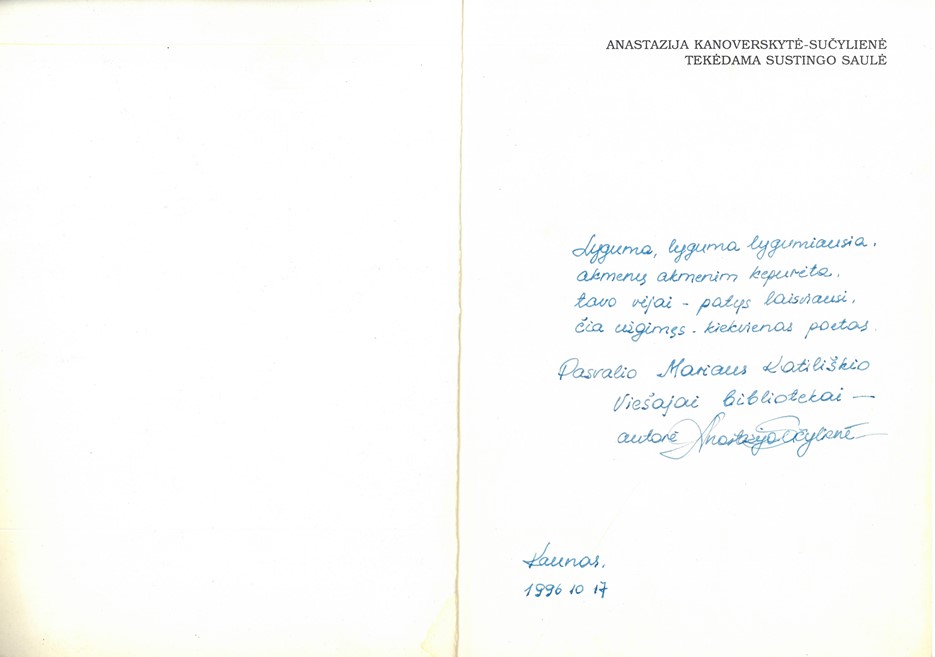 ANASTAZIJA KANOVERSKYTĖ-SUČYLIENĖ
TEKĖDAMA SUSTINGO SAULĖ
Lyguma, lyguma lygumiausia,
akmenų akmenim kepurėta,
tavo vėjai - patys laisviausi,
čia užgimęs - kiekvienas poetas.
Pasvalio Mariaus Katiliškio
Viešajai bibliotekai —
autorė Anastazija Sučylienė
Kaunas,
1996 10 17